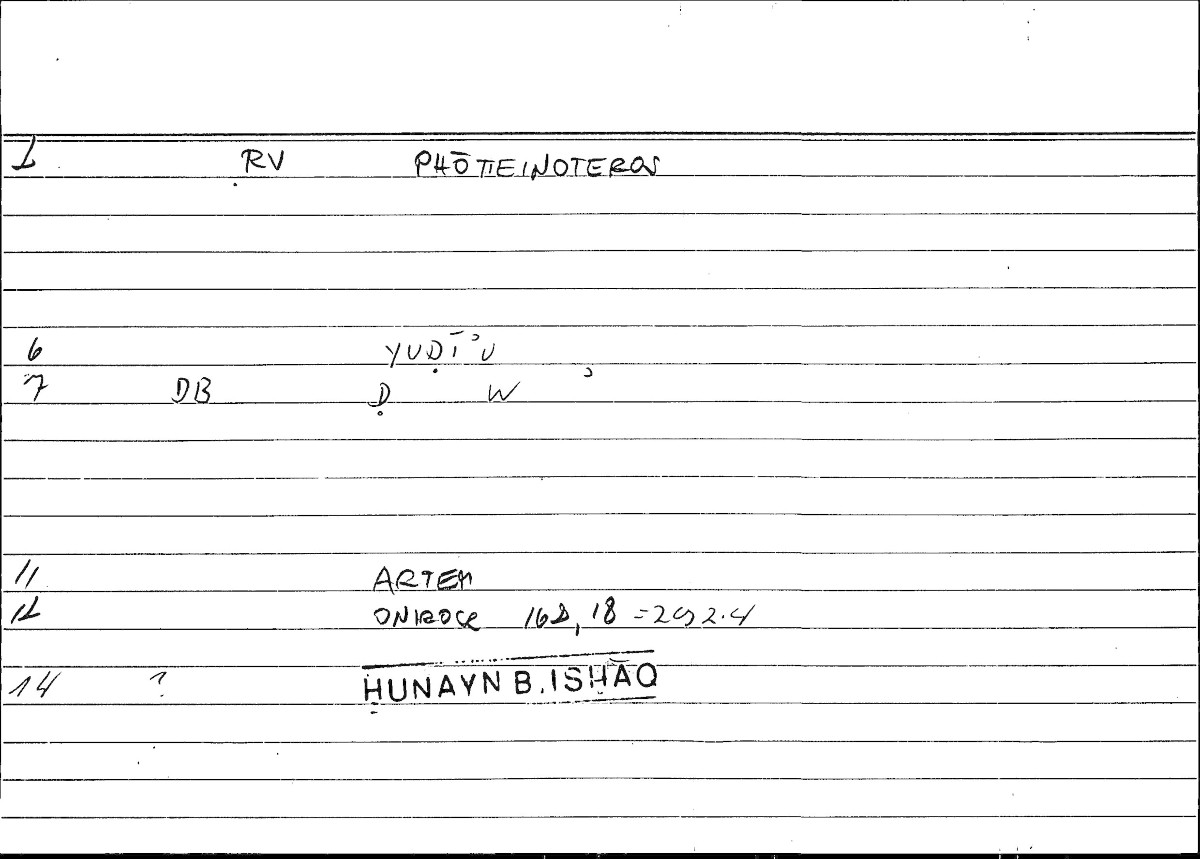 1 RV PHŌTEINOTEROS
6 YUḌĪʾU
7 DB Ḍ W ʾ
11 ARTEM
12 ONIROCR 168, 18 = 292.4
14 ? ḤUNAYN B. ISḤĀQ